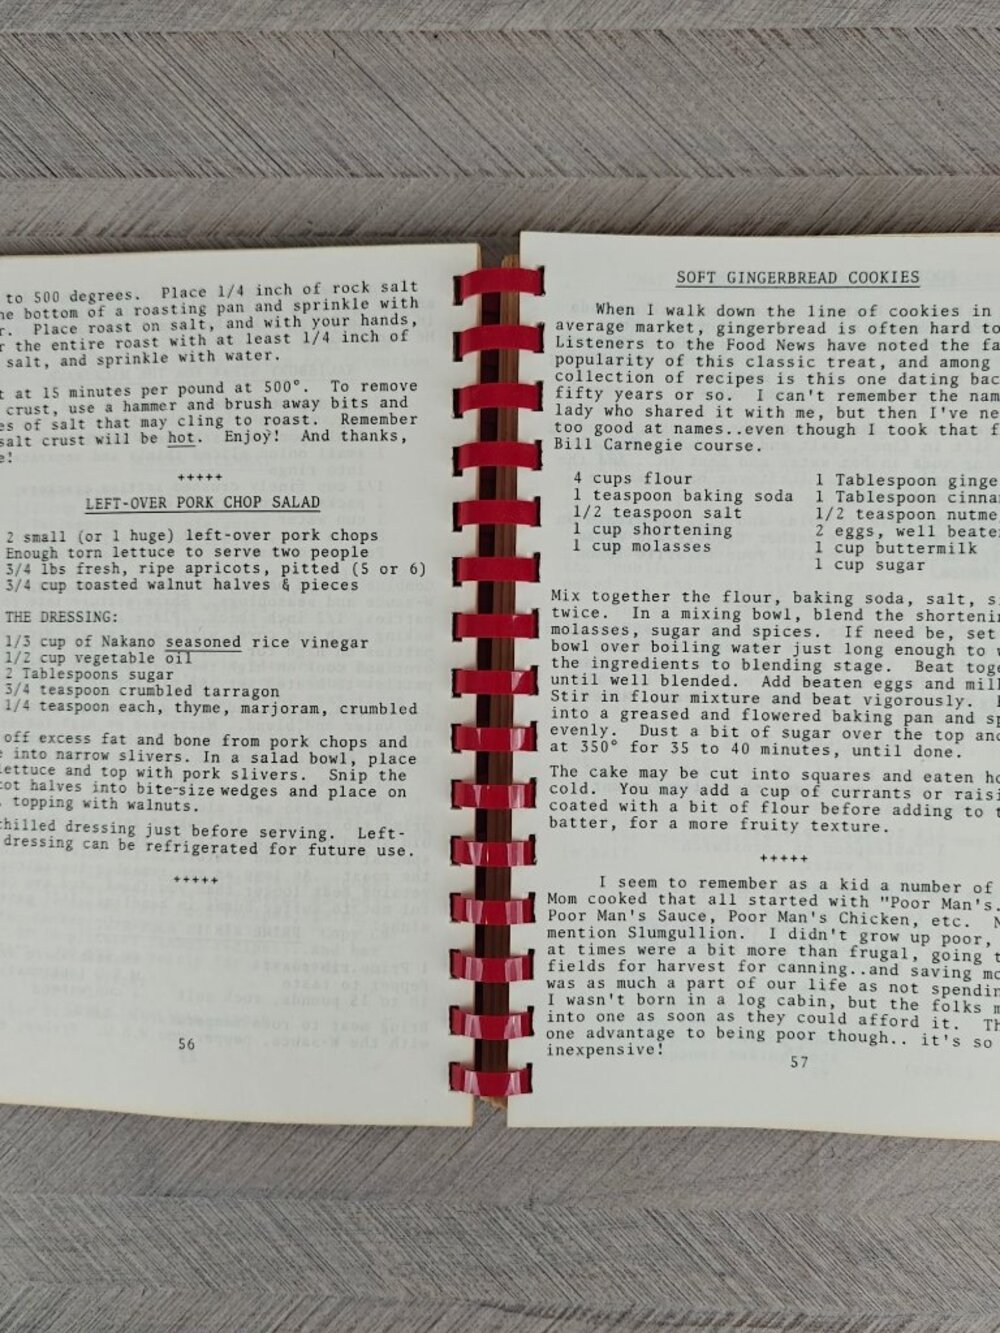 to 500 degrees. Place 1/4 inch of rock salt
bottom of a roasting pan and sprinkle with
Place roast on salt, and with your hands,
the entire roast with at least 1/4 inch of
salt, and sprinkle with water.
at 15 minutes per pound at 500°. To remove
crust, use a hammer and brush away bits and
of salt that may cling to roast. Remember
salt crust will be hot. Enjoy! And thanks,
+++++
LEFT-OVER PORK CHOP SALAD
2 small (or 1 huge) left-over pork chops
Enough torn lettuce to serve two people
3/4 lbs fresh, ripe apricots, pitted (5 or 6)
3/4 cup toasted walnut halves & pieces
THE DRESSING:
1/3 cup of Nakano seasoned rice vinegar
1/2 cup vegetable oil
2 Tablespoons sugar
3/4 teaspoon crumbled tarragon
1/4 teaspoon each, thyme, marjoram, crumbled
off excess fat and bone from pork chops and
into narrow slivers. In a salad bowl, place
lettuce and top with pork slivers. Snip the
halves into bite-size wedges and place on
topping with walnuts.
chilled dressing just before serving. Left-
dressing can be refrigerated for future use.
+++++
56
SOFT GINGERBREAD COOKIES
When I walk down the line of cookies in
average market, gingerbread is often hard to
Listeners to the Food News have noted the
popularity of this classic treat, and among
collection of recipes is this one dating
fifty years or so. I can't remember the
lady who shared it with me, but then I've
too good at names..even though I took that
Bill Carnegie course.
4 cups flour
1 teaspoon baking soda
1/2 teaspoon salt
1 cup shortening
1 cup molasses
1 Tablespoon
1 Tablespoon
1/2 teaspoon
2 eggs, well
1 cup buttermilk
1 cup sugar
Mix together the flour, baking soda, salt,
twice. In a mixing bowl, blend the
molasses, sugar and spices. If need be, set
bowl over boiling water just long enough to
the ingredients to blending stage. Beat
until well blended. Add beaten eggs and
Stir in flour mixture and beat vigorously.
into a greased and flowered baking pan and
evenly. Dust a bit of sugar over the top and
at 350° for 35 to 40 minutes, until done.
The cake may be cut into squares and eaten
cold. You may add a cup of currants or
coated with a bit of flour before adding to
batter, for a more fruity texture.
+++++
I seem to remember as a kid a number of
Mom cooked that all started with "Poor Man's.
Poor Man's Sauce, Poor Man's Chicken, etc.
mention Slumgullion. I didn't grow up poor,
at times were a bit more than frugal, going
fields for harvest for canning..and saving
was as much a part of our life as not
I wasn't born in a log cabin, but the folks
into one as soon as they could afford it.
one advantage to being poor though.. it's so
inexpensive!
57